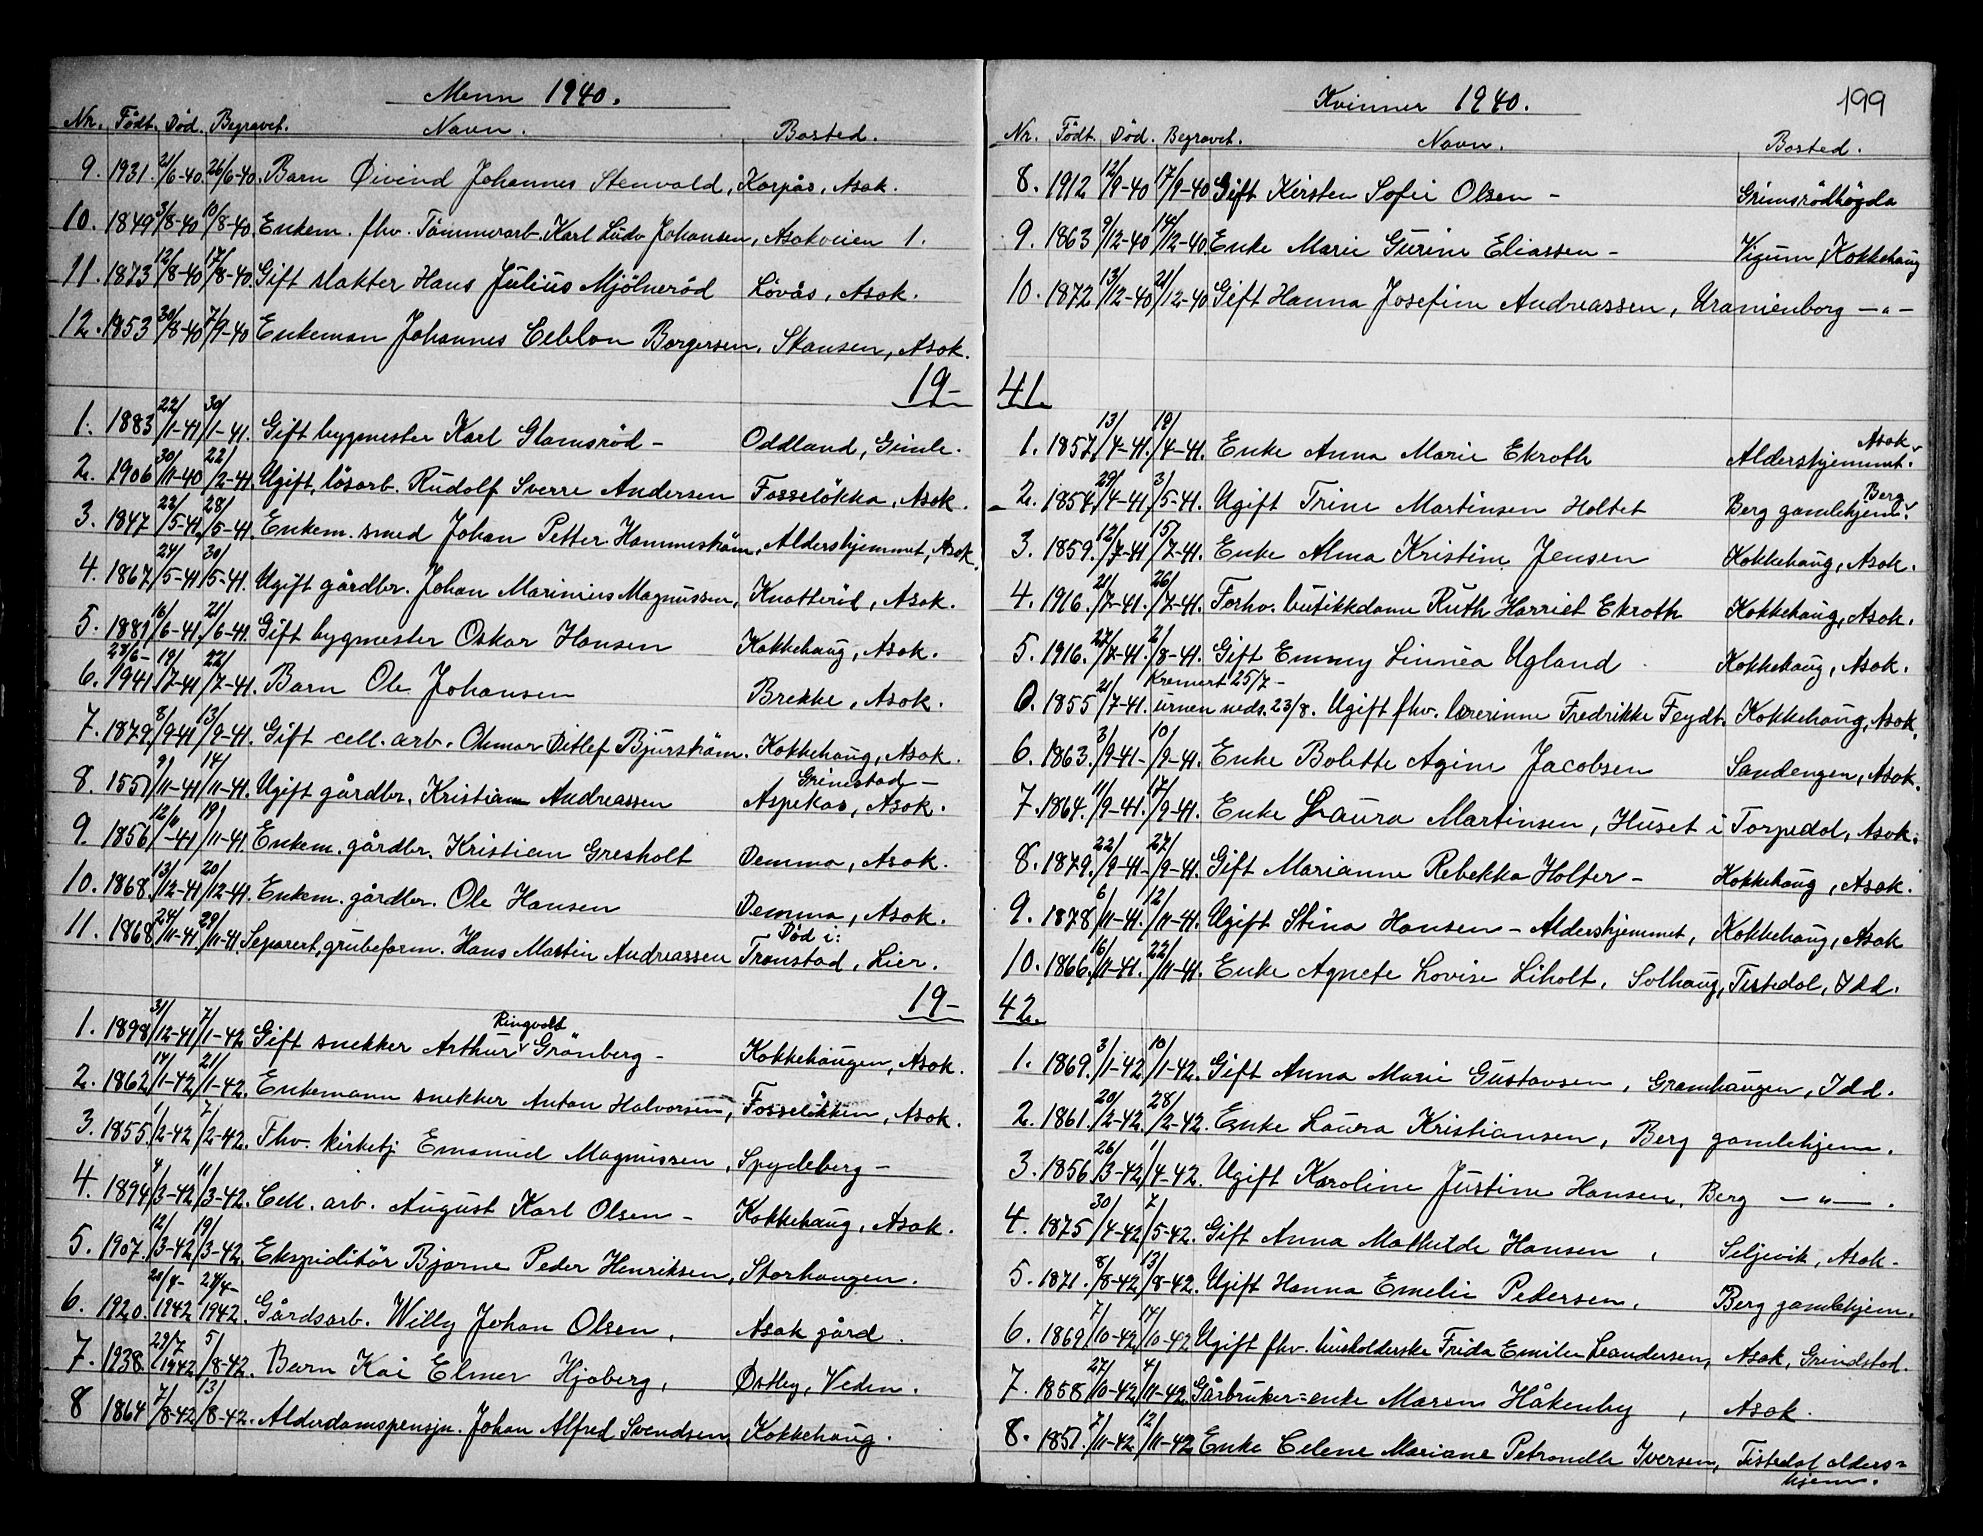 Menn 1940.
Nr. Født. Død. Begravet. Navn. Bosted.
9. 1931. 21/6-40. 26/6-40. Barn Øivind Johannes Stenvold, Korpås, Asak.
10. 1849 3/8-40 10/8-40. Enkem. fhv. Tømmerarb. Karl Ludv Johansen, Asakveien 1.
11. 1873 12/8-40 17/8-40. Gift slakter Hans Julius Mjölneröd Lövås, Asak.
12. 1853 30/8-40 7/9-40 Enkeman Johannes Ceblon Borgersen, Skansen, Asak.
19-
1. 1883 22/1-41 30/1-41. Gift bygmester Karl Glamsröd - Oddland, Gimle.
2. 1906 30/11-40 22/2-41. Ugift, lösarb. Rudolf Sverre Andersen Fosselökka, Asak.
3. 1847 22/5-41. 28/5-41. Enkem. smed Johan Petter Hammeström, Aldershjemmet, Asak.
4. 1867 24/5-41 30/5-41. Ugift gårdbr. Johan Marinius Magnussen, Knatteröd, Asak.
5. 1881 16/6-41. 21/6-41. Gift bygmester Oskar Hansen Kokkehaug, Asak.
6. 28/6-1941 19/7-41 22/7-41. Barn Ole Johansen Brekke, Asak.
7. 1879. 8/9-41 13/9-41. Gift cell. arb. Otmar Ditlef Bjurström. Kokkehaug, Asak.
8. 1551 9/11-41 14/11-41. Ugift gårdbr. Kristian Andreassen Grimstad - Aspekas, Asak.
9. 1856 12/11-41 19/11-41. Enkem. gårdbr. Kristian Gresholt Demma, Asak.
10. 1868. 13/12-41 20/12-41. Enkem. gårdbr. Ole Hansen Demma, Asak.
11. 1868 24/11-41 29/11-41. Separert, grubeform. Hans Martin Andreassen Død i: Transtad, Lier.
19-
1. 1898 31/12-41 7/1-42 Gift snekker Arthur Ringvold Grönberg - Kokkehaugen, Asak.
2. 1862 14/1-42 21/1-42. Enkemann snekker Anton Halvorsen, Fosselökken, Asak.
3. 1855. 1/2-42 7/2-42. Fhv. kirketj Emanuel Magnussen, Spydeberg -
4. 1894 4/3-42 11/3-42. Cell. arb. August Karl Olsen - Kokkehaug, Asak.
5. 1907. 12/3-42 19/3-42. Ekspiditör Bjarne Peder Henriksen, Storhaugen.
6. 1920. 20/4-1942 27/4-1942. Gårdsarb. Willy Johan Olsen, Asak gård.
7. 1938. 29/7 1942 5/8-42. Barn Kai Elmer Hjoberg, Østby, Veden.
8 1864 7/8-42 13/8-42. Alderdomspensjn. Johan Alfred Svendsen, Kokkehaug.
199
Kvinner 1940.
Nr. Født. Død. Begravet. Navn. Bosted.
8. 1912 12/9-40 17/9-40 Gift Kirsten Sofie Olsen - Grimsrödhögda
9. 1863 9/12-40 14/12-40. Enke Marie Gurine Eliassen - Vigum, Kokkehaug
10. 1872 13/12-40 21/12-40. Gift Hanna Josefine Andreassen, Uranienborg -"-
41.
1. 1857. 13/4-41. 19/4-41. Enke Anna Marie Ekroth Aldershjemmet. Asak
2. 1854. 29/4-41. 3/5-41. Ugift Trine Martinsen Holtet Berg gamlehjem. Berg
3. 1859. 12/7-41 15/7-41. Enke Alma Kristine Jensen Kokkehaug, Asak.
4. 1916. 21/7-41. 26/7-41. Forhv. butikkdame Ruth Harriet Ekroth Kokkehaug, Asak.
5. 1916. 27/7-41. 2/8-41. Gift Emmy Linnea Ugland Kokkehaug, Asak.
0. 1855 21/7-41. Kremert 25/7 - urnen neds. 23/8. Ugift fhv. lærerinne Fredrikke Feydt. Kokkehaug, Asak.
6. 1863. 3/9-41- 10/9-41. Enke Bolette Agine Jacobsen Sandengen, Asak.
7. 1864. 11/9-41. 17/9-41. Enke Laura Martinsen, Huset i Torpedal, Asak.
8. 1879. 22/9-41- 27/9-41. Gift Marianne Rebekka Holter - Kokkehaug, Asak.
9. 1878 6/11-41. 12/11-41. Ugift Stina Hansen - Aldershjemmet, Kokkehaug, Asak
10. 1866. 16/11-41. 22/11-41. Enke Agnete Lovise Liholt, Solhaug, Tistedal, Idd.
42.
1. 1869. 3/1-42. 10/1-42. Gift Anna Marie Gustavsen, Granhaugen, Idd.
2. 1861. 20/2-42. 28/2-42. Enke Laura Kristiansen, Berg gamlehjem.
3. 1856. 26/3-42 1/4-42. Ugift Karoline Justine Hansen, Berg -"-.
4. 1875 30/4-42 7/5-42. Gift Anna Mathilde Hansen, Seljevik, Asak.
5. 1871. 8/8-42 13/8-42. Ugift Hanna Emelie Pedersen, Berg gamlehjem.
6. 1869 7/10-42 14/10-42 Ugift fhv. husholderske Frida Emilie Leandersen, Asak, Grindstad.
7. 1858 27/10-42 4/11-42. Gårbruker=enke Maren Håkenby, Asak.
8. 1851. 7/11-42 12/11-42 Enke Celene Mariane Petronelle Iversen, Tistedal alders=
hjem.